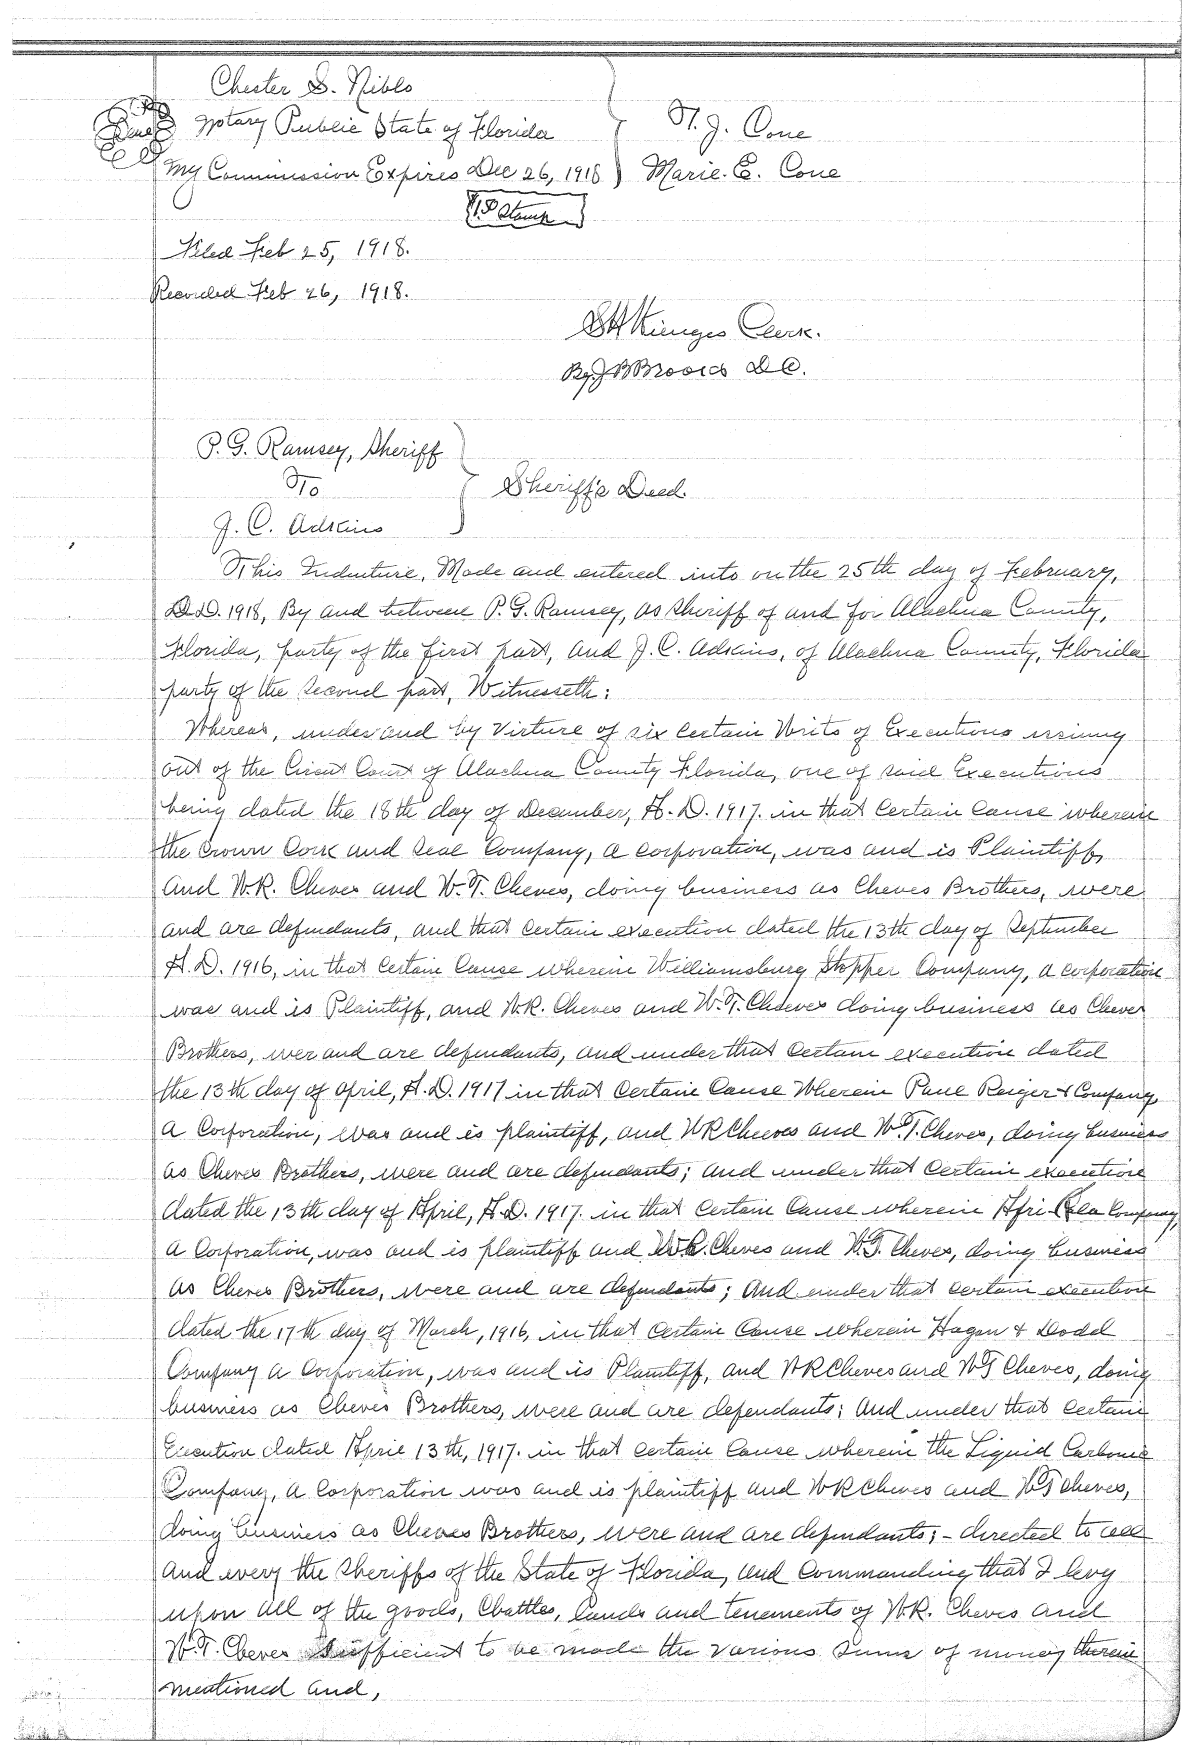 Chester S. Niblo
Seal Notary Public State of Florida
T. J. Cone
My Commission Expires Dec 26, 1918 Marie. E. Cone
Stamp
Filed Feb 25, 1918.
Recorded Feb 26, 1918.
S H Wienges Clerk.
By J B Brooks D C.
P. G. Ramsey, Sheriff
To
Sheriff's Deed.
J. C. Adkins
This Indenture, Made and entered into on the 25th day of February,
A.D. 1918, By and between P. G. Ramsey, as Sheriff of and for Alachua County,
Florida, party of the first part, and J. C. Adkins, of Alachua County, Florida
party of the second part, Witnesseth:
Whereas, under and by Virture of six certain Writs of Executions issuing
out of the Circuit Court of Alachua County Florida, one of said Executions
being dated the 18th day of December, A. D. 1917. in that certain cause wherein
the Crown Cork and Seal Company, a corporation, was and is Plaintiff,
and W.R. Cheves and W. T. Cheves, doing business as Cheves Brothers, were
and are defendants, and that certain execution dated the 13th day of September
A. D. 1916, in that certain cause wherein Williamsburg Stopper Company, a corporation
was and is Plaintiff, and W.R. Cheves and W. T. Cheeves doing business as Cheves
Brothers, wer and are defendants, and under that certain execution dated
the 13th day of April, A. D. 1917 in that certain cause Wherein Paul Reiger & Company,
a Corporation, was and is plaintiff, and W R Cheeves and W. T. Cheves, doing business
as Cheves Brothers, were and are defendants; and under that certain execution
dated the 13th day of April, A. D. 1917. in that certain cause wherein Afri-Kola Company,
a Corporation, was and is plaintiff and W.R. Cheves and W. T. Cheves, doing business
as Cheves Brothers, were and are defendants; and under that certain execution
dated the 17th day of March, 1916, in that certain cause wherein Hagan & Dodd
Company a Corporation, was and is Plaintiff, and W R Cheves and W T Cheves, doing
business as Cheves Brothers, were and are defendants; and under that certain
Execution dated April 13th, 1917. in that certain cause wherein the Liquid Carbonic
Company, a Corporation was and is plaintiff and W R Cheves and W T Cheves,
doing business as Cheves Brothers, were and are defendants;- directed to all
and every the sheriffs of the State of Florida, and commanding that I levy
upon all of the goods, Chattles, lands and tenements of W.R. Cheves and
W. T. Cheves sufficient to be made the various sums of money therein
mentioned and,